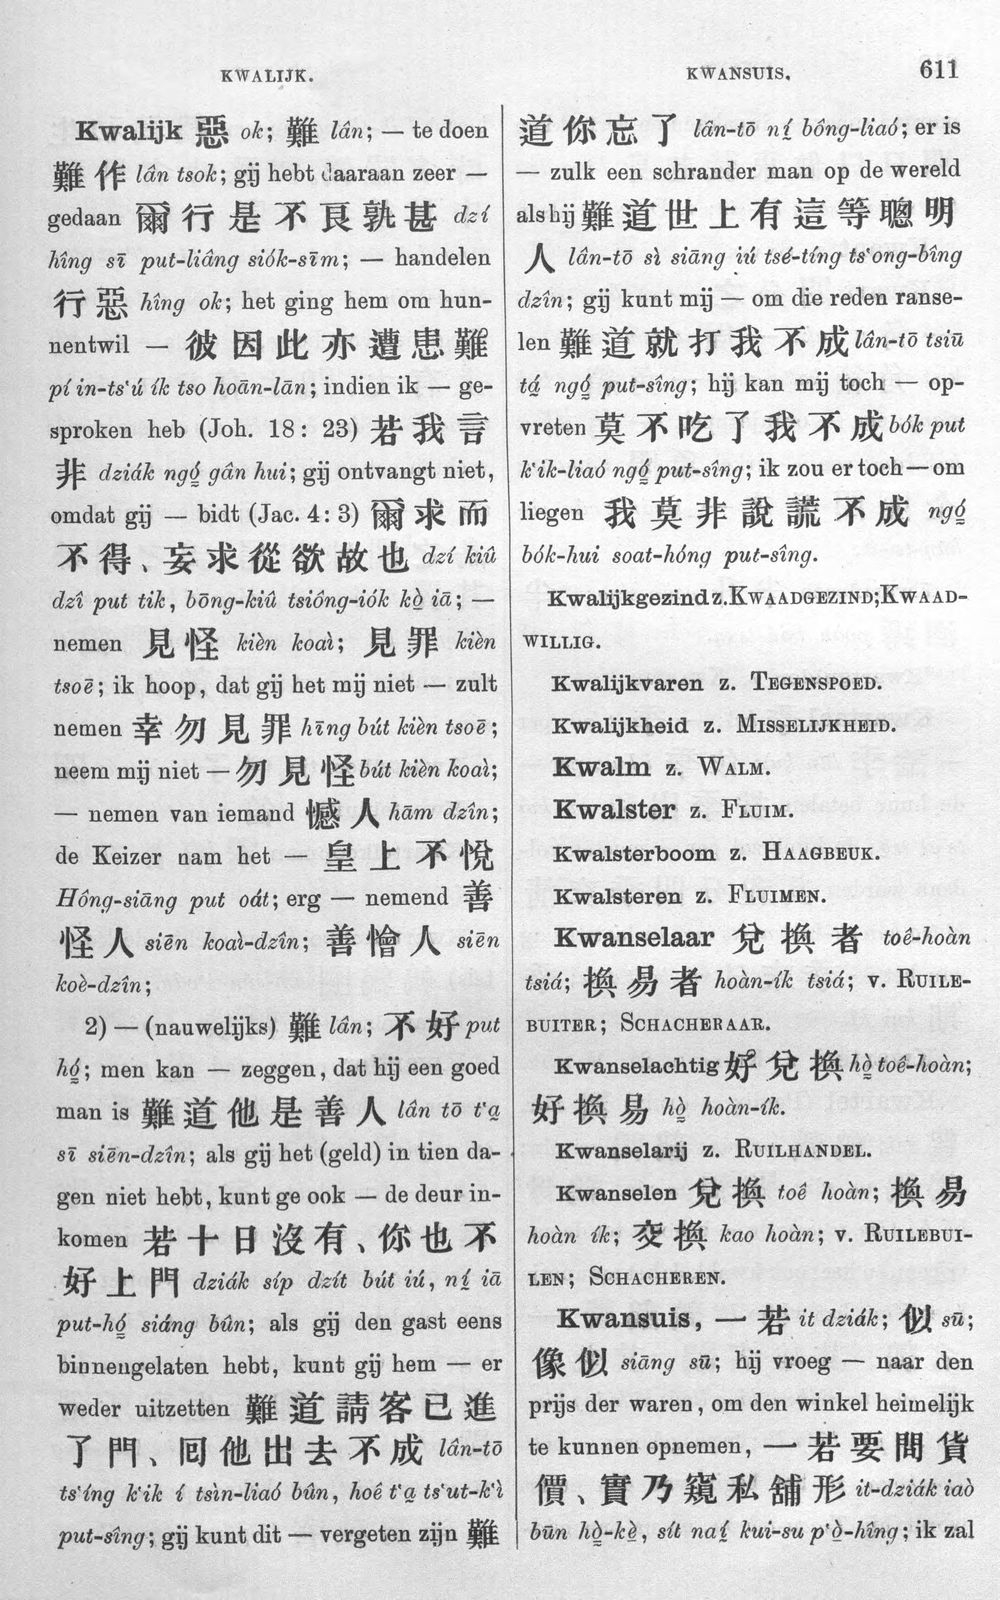 KWALIJK.
KWANSUIS.
611
Kwalijk 惡 ok; 難 lân; — te doen
難作 lân tsok; gij hebt daaraan zeer —
gedaan 爾行是不良孰甚 dzí
hîng sī put-liâng siók-sīm; — handelen
行惡 hîng ok; het ging hem om hun-
nentwil — 彼因此亦遭患難
pí in-ts'ú ík tso hoān-lān; indien ik — ge-
sproken heb (Joh. 18: 23) 若我言
非 dziák ngó̤ gân hui; gij ontvangt niet,
omdat gij — bidt (Jac. 4: 3) 爾求而
不得、妄求從欲故也 dzí kiû
dzî put tik, bōng-kiû tsiông-iók kò̤ iā; —
nemen 見怪 kièn koaì; 見罪 kièn
tsoē; ik hoop, dat gij het mij niet — zult
nemen 幸勿見罪 hīng bút kièn tsoē;
neem mij niet — 勿見怪 bút kièn koaì;
— nemen van iemand 憾人 hām dzîn;
de Keizer nam het — 皇上不悅
Hông-siāng put oát; erg — nemend 善
怪人 siēn koaì-dzîn; 善懀人 siēn
koè-dzîn;
2) — (nauwelijks) 難 lân; 不好 put
hó̤; men kan — zeggen, dat hij een goed
man is 難道他是善人 lân tō t'a̤
sī siēn-dzîn; als gij het (geld) in tien da-
gen niet hebt, kunt ge ook — de deur in-
komen 若十日沒有、你也不
好上門 dziák síp dzít bút iú, ní̤ iā
put-hó̤ siáng bûn; als gij den gast eens
binnengelaten hebt, kunt gij hem — er
weder uitzetten 難道請客已進
了門、囘他出去不成 lân-tō
ts'íng k'ik í tsìn-liaó bûn, hoê t'a̤ ts'ut-k'ì
put-sîng; gij kunt dit — vergeten zijn 難
道你忘了 lân-tō ní̤ bông-liaó; er is
— zulk een schrander man op de wereld
als hij 難道世上有這等聰明
人 lân-tō sì siāng iú tsé-tíng ts'ong-bîng
dzîn; gij kunt mij — om die reden ranse-
len 難道就打我不成 lân-tō tsiū
tá̤ ngó̤ put-sîng; hij kan mij toch — op-
vreten 莫不吃了我不成 bók put
k'ik-liaó ngó̤ put-sîng; ik zou er toch — om
liegen 我莫非說謊不成 ngó̤
bók-hui soat-hóng put-sîng.
Kwalijkgezind z. KWAADGEZIND; KWAAD-
WILLIG.
Kwalijkvaren z. TEGENSPOED.
Kwalijkheid z. MISSELIJKHEID.
Kwalm z. WALM.
Kwalster z. FLUIM.
Kwalsterboom z. HAAGBEUK.
Kwalsteren z. FLUIMEN.
Kwanselaar 兌換者 toê-hoàn
tsiá; 換易者 hoàn-ík tsiá; v. RUILE-
BUITER; SCHACHERAAR.
Kwanselachtig 好兌換 hò̤ toê-hoàn;
好換易 hò̤ hoàn-ík.
Kwanselarij z. RUILHANDEL.
Kwanselen 兌換 toê hoàn; 換易
hoàn ík; 交換 kao hoàn; v. RUILEBUI-
LEN; SCHACHEREN.
Kwansuis, 一若 it dziák; 似 sū;
像似 siāng sū; hij vroeg — naar den
prijs der waren, om den winkel heimelijk
te kunnen opnemen, 一若要問貨
價、實乃窺私舖形 it-dziák iaò
būn hò̤-kè̤, sít naí̤ kui-su p'ò̤-hîng; ik zal